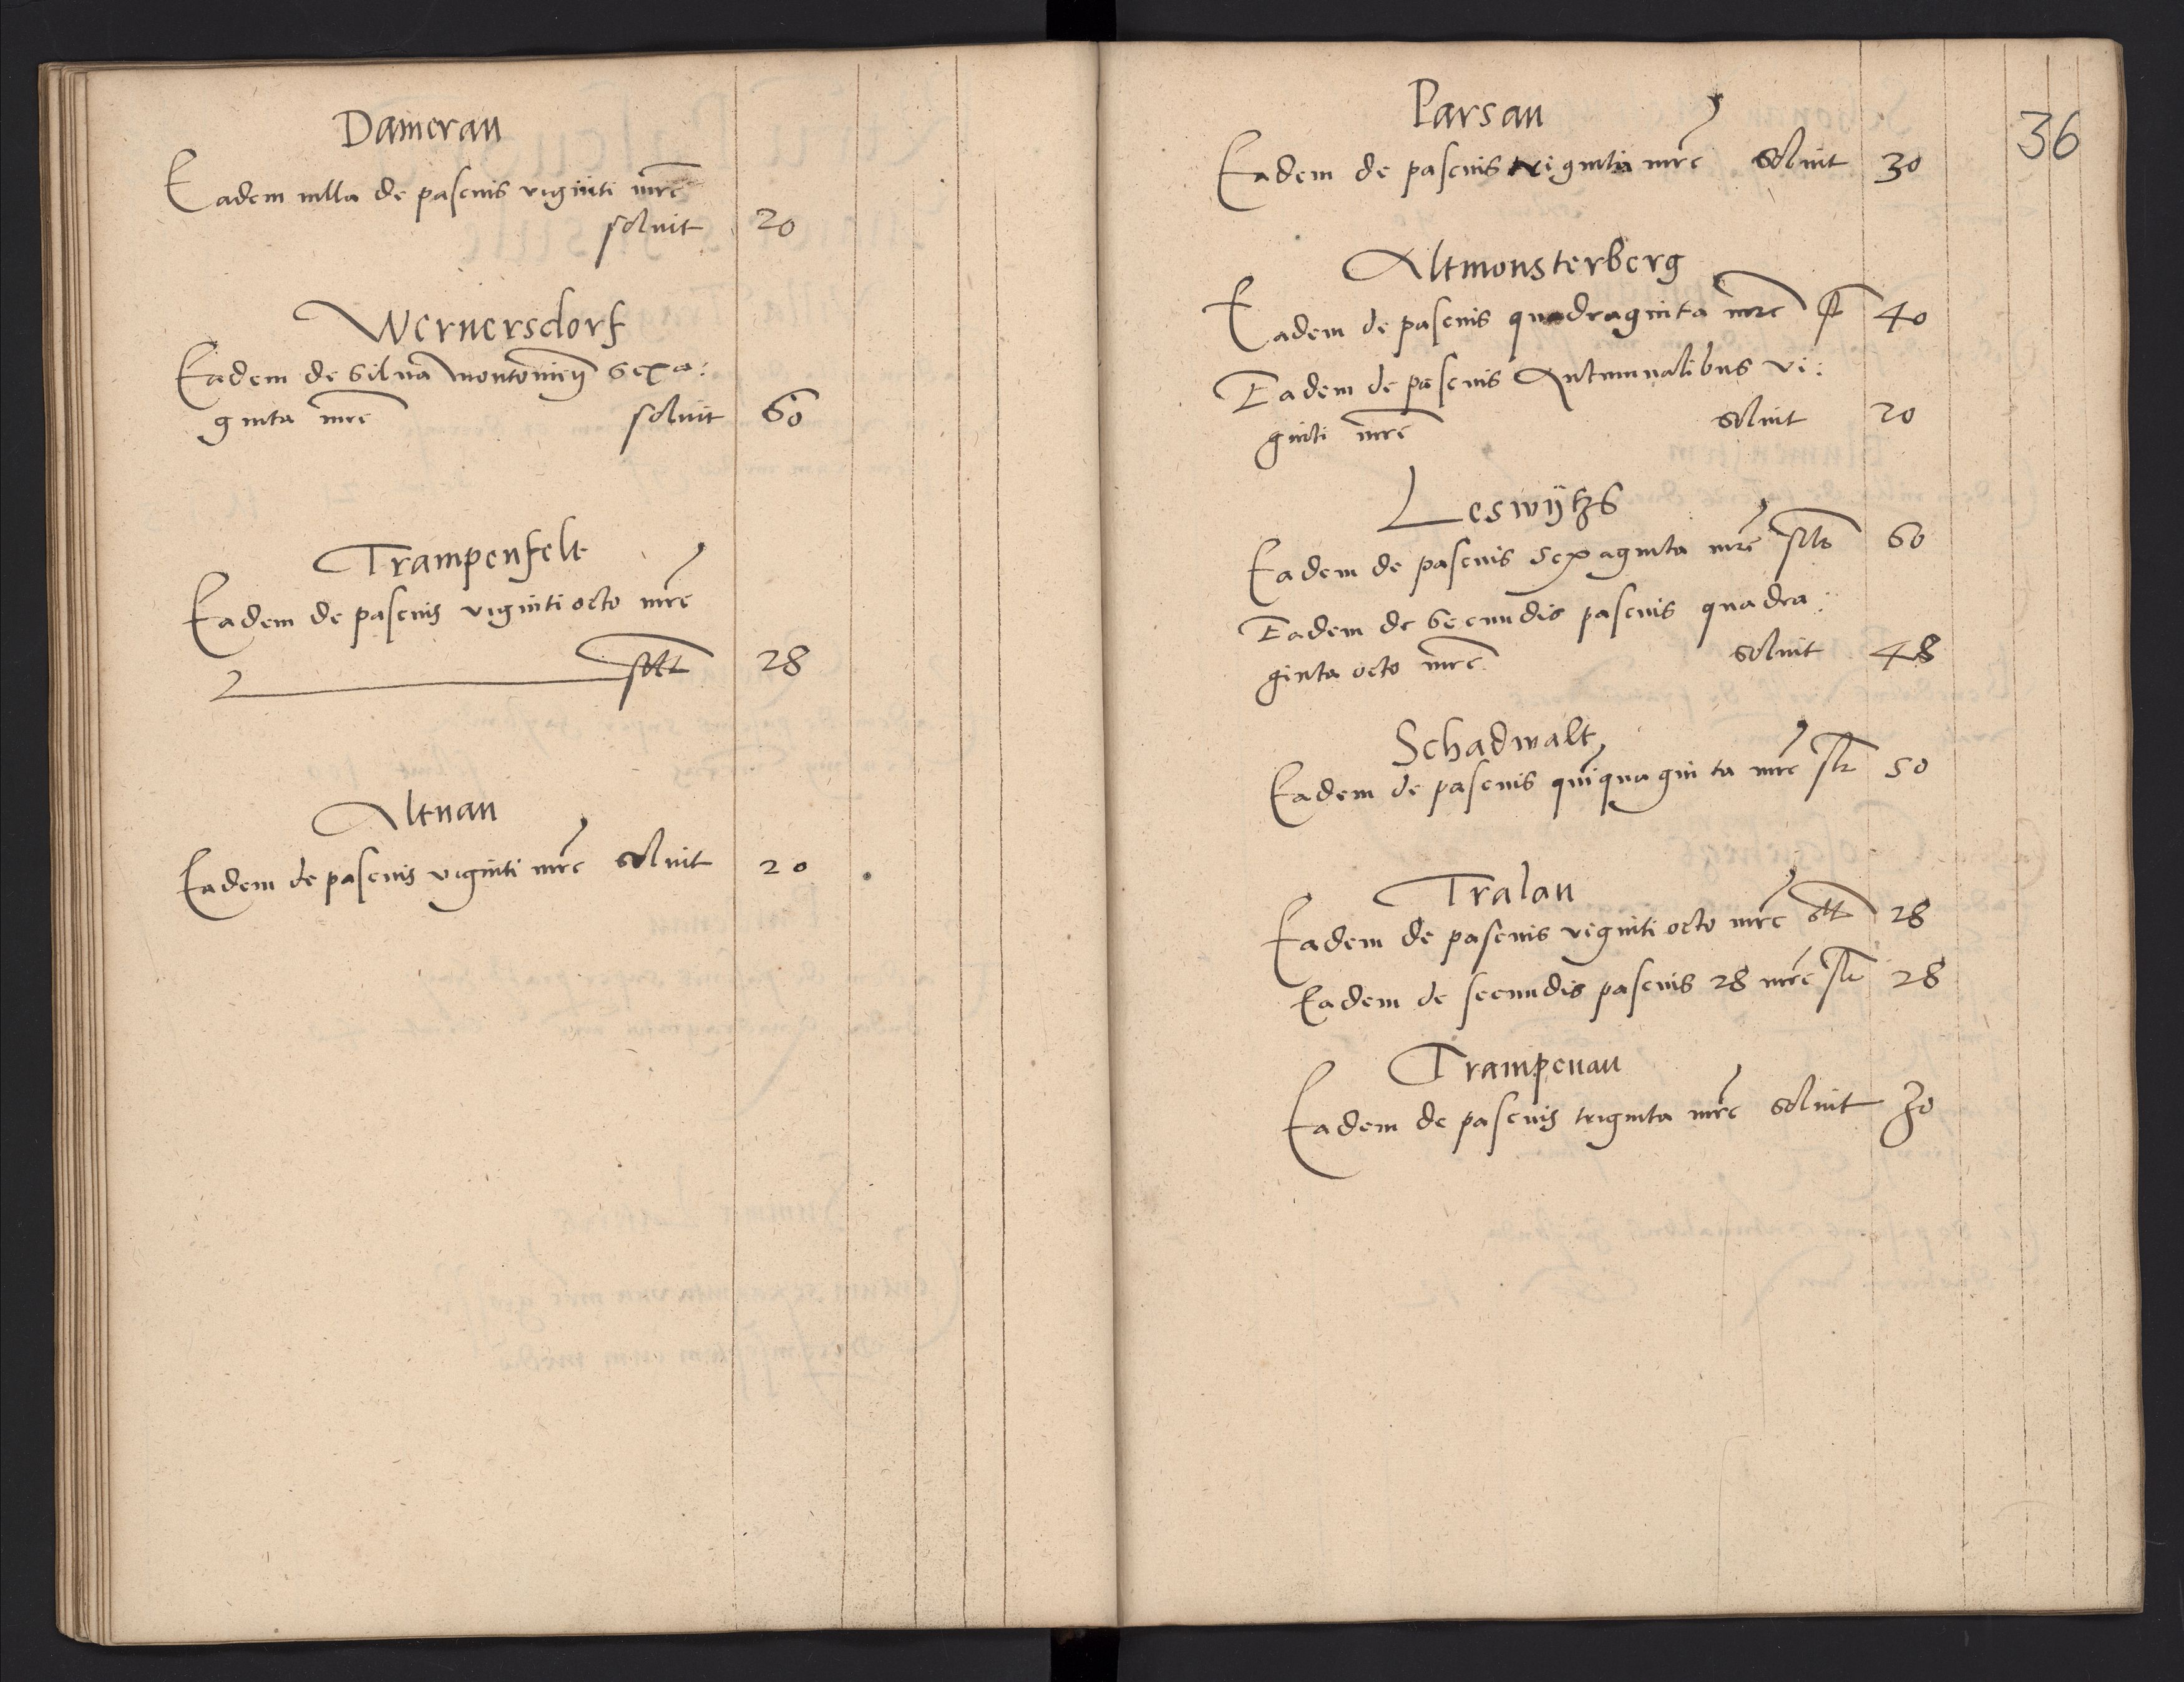 Damerau
Eadem villa de pascuis viginti mrc
soluit 20
Wernersdorf
Eadem de silua montowien sexa:
ginta mrc soluit 60
Trampenfelt
Eadem de pascuis viginti octo mrc
sllt 28
Altnau
Eadem de pascuis viginti mrc soluit 20
36
Parsau
Eadem de pascuis triginta mrc soluit 30
Altmonsterberg
Eadem de pascuis quadraginta mrc slt 40
Eadem de pascuis Autumnalibus vi:
ginti mrc soluit 20
Leswÿtz
Eadem de pascuis sexaginta mrc slt 60
Eadem de secundis pascuis quadra:
ginta octo mrc soluit 48
Schadwalt
Eadem de pascuis quiquaginta mrc slt 50
Tralau
Eadem de pascuis viginti octo mrc slt 28
Eadem de secundis pascuis 28 mrc slt 28
Trampenau
Eadem de pascuis triginta mrc soluit 30